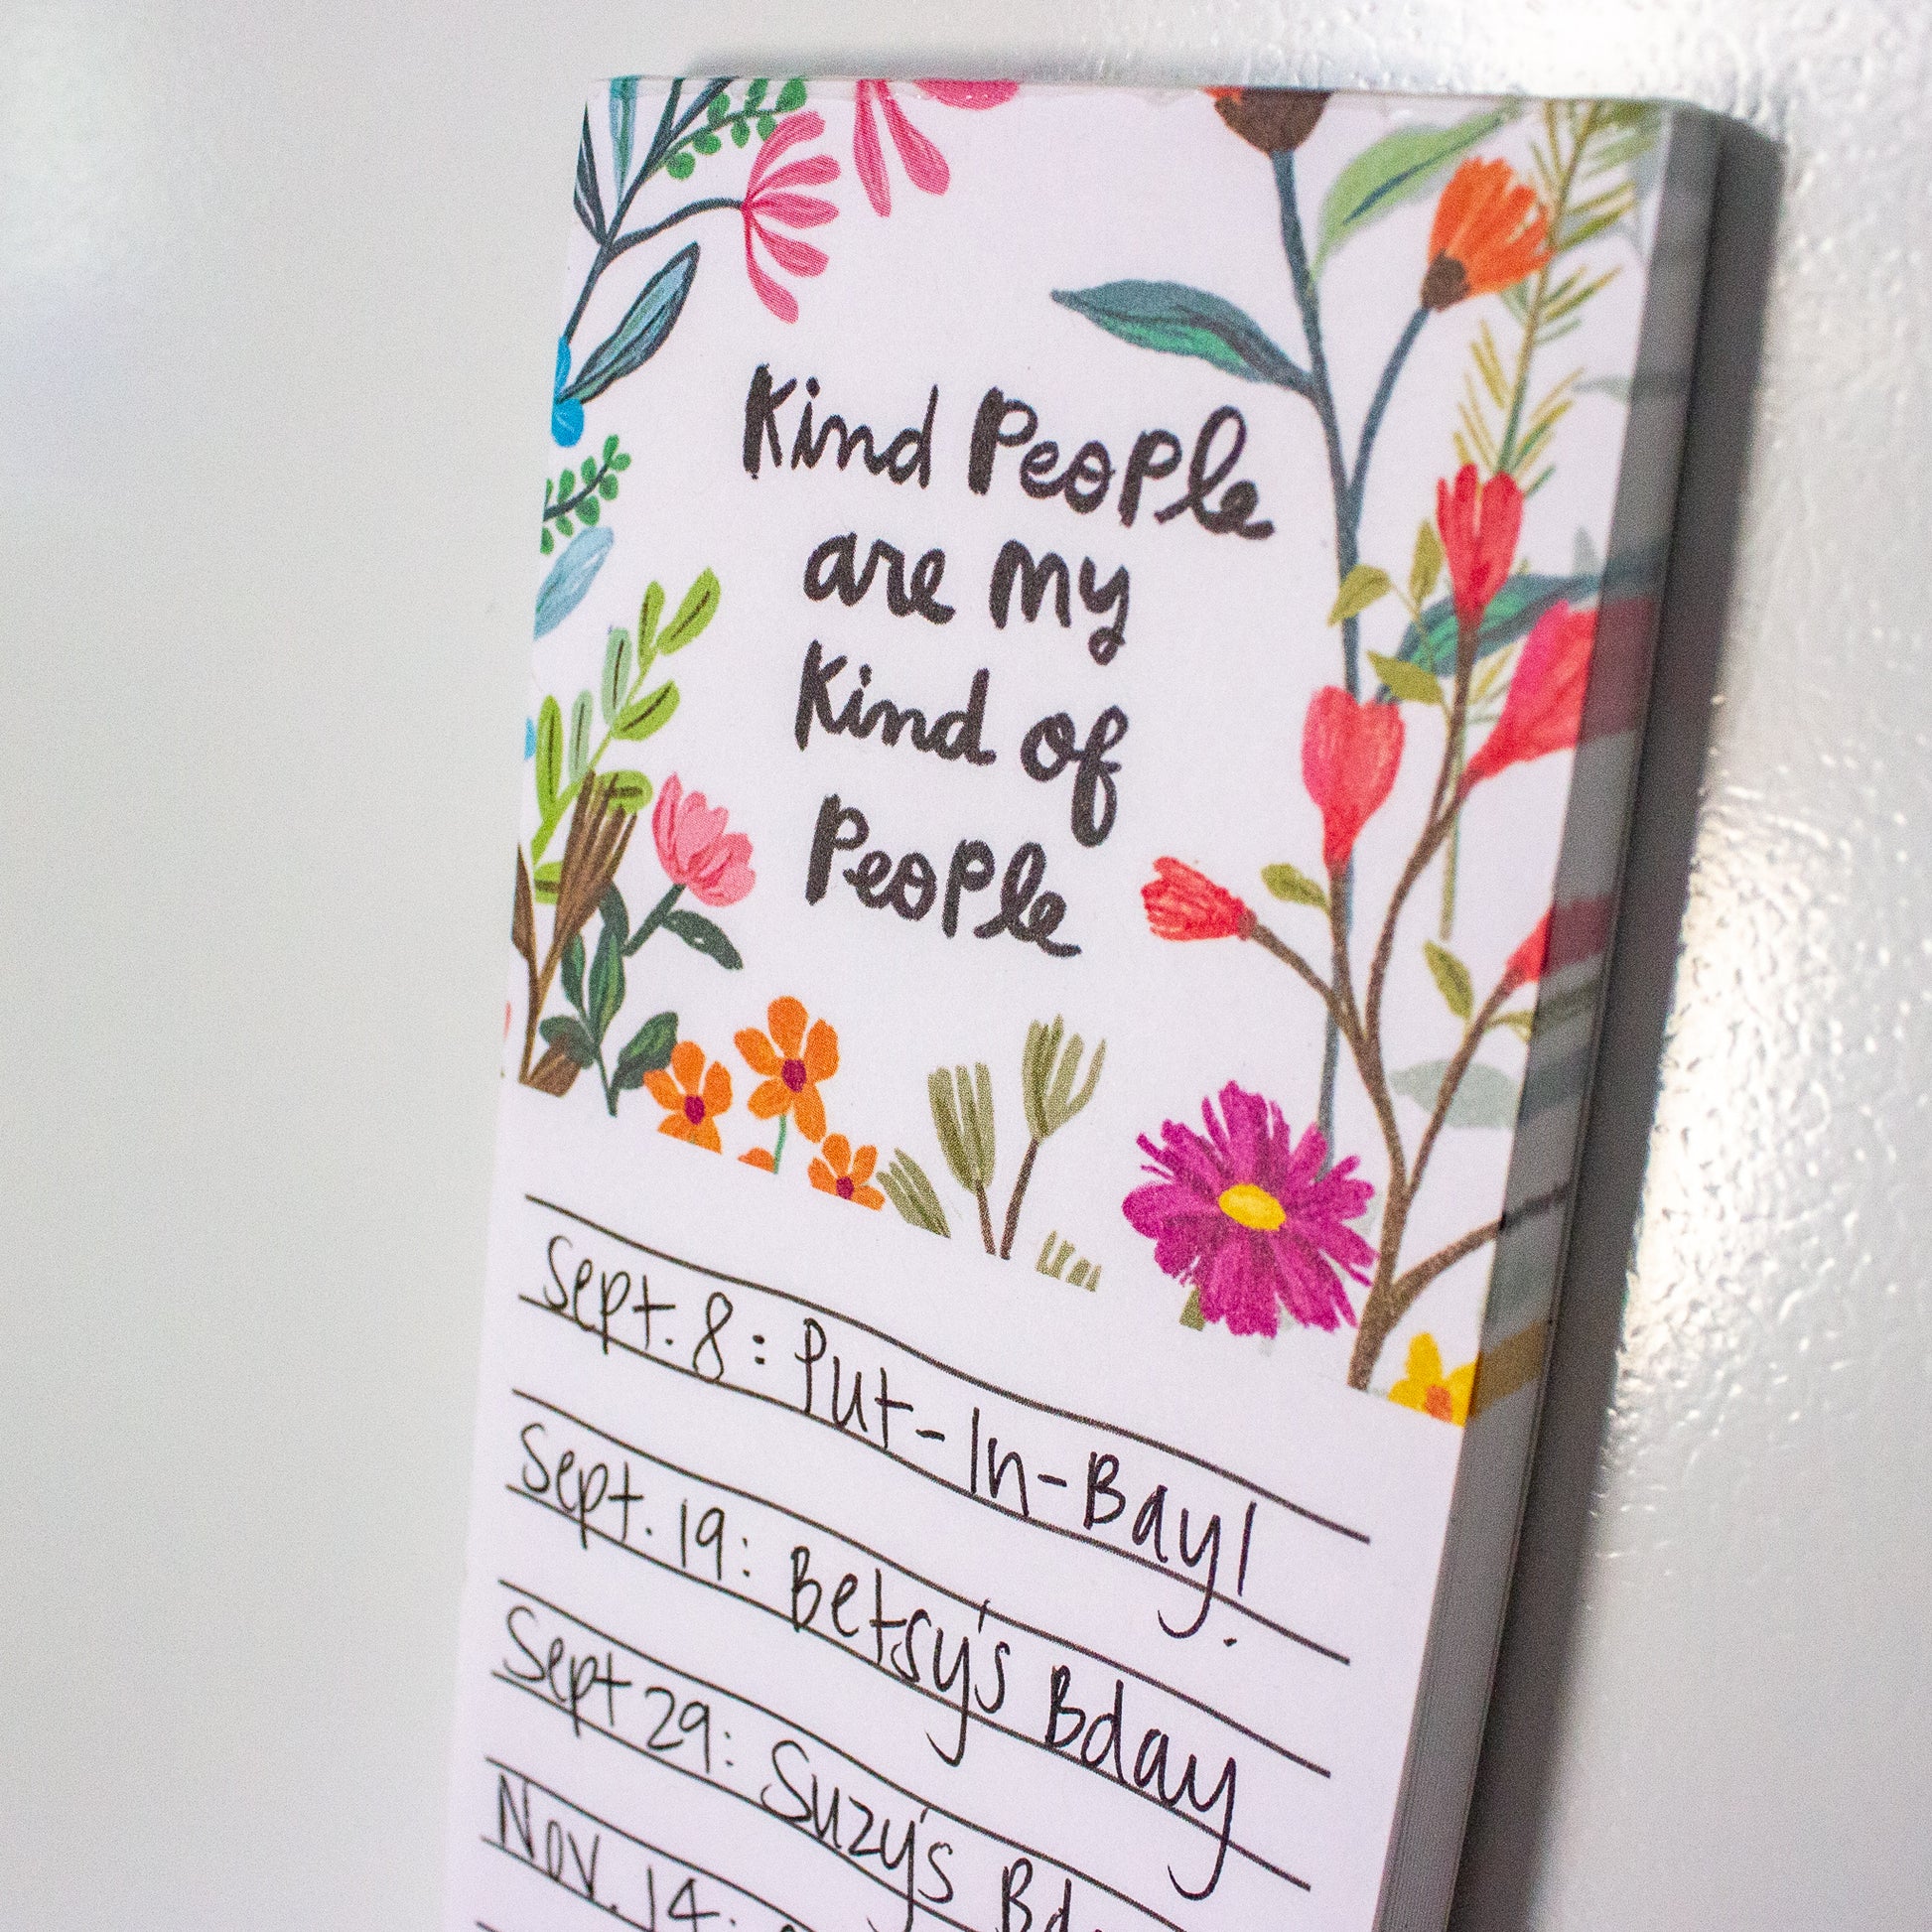 Kind People
are my
Kind of
People
Sept. 8: Put-In-Bay!
Sept. 19: Betsy's Bday
Sept 29: Suzy's
Nov. 14: